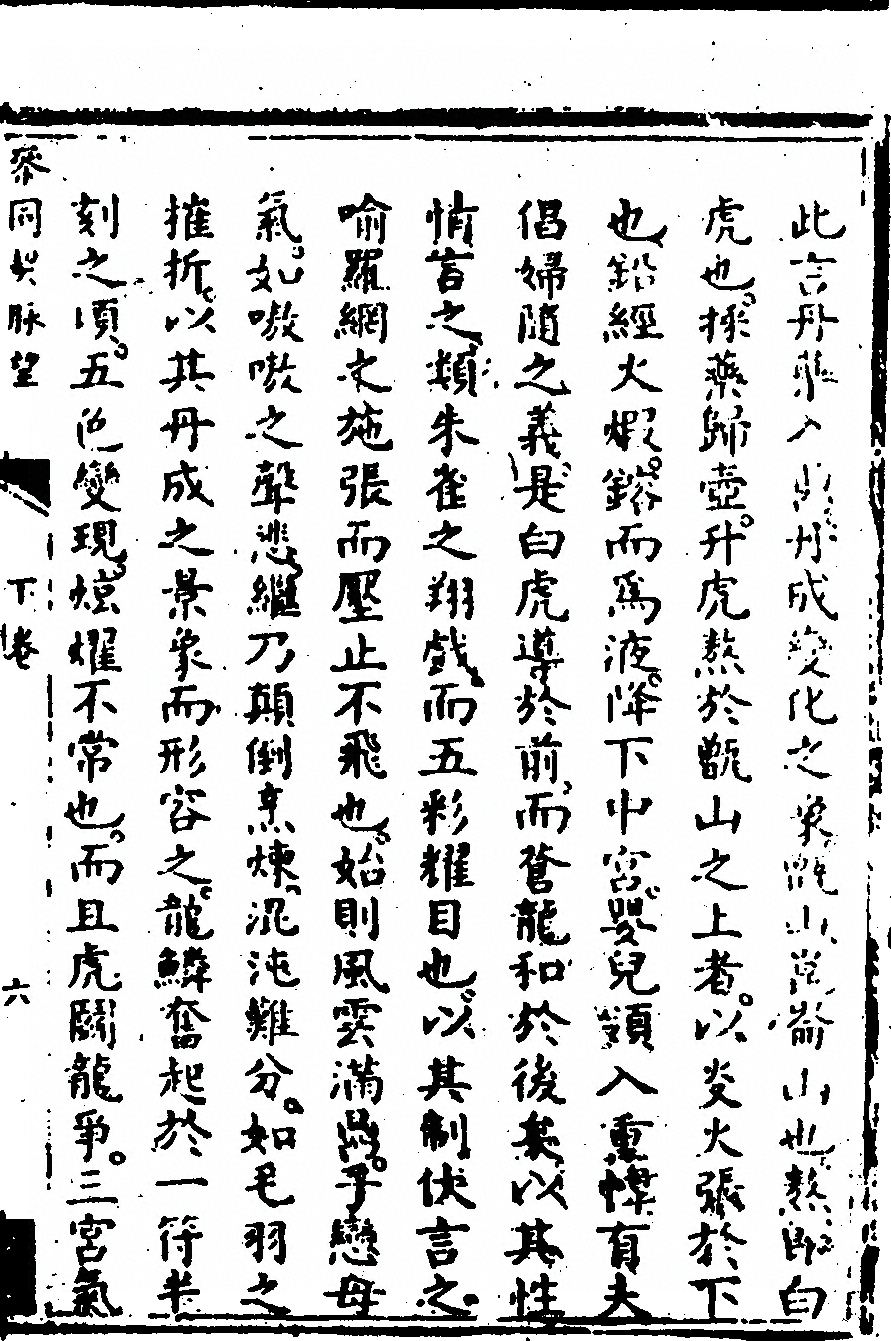 此言丹藥入山丹成變化之象甑山崑崙山也熬卽白
虎也採藥歸壺升虎熬於甑山之上者以炎火張於下
也鉛經火煆鎔而爲液降下中宮嬰兒頭入重幃有夫
倡婦隨之義是白虎導於前而蒼龍和於後矣以其性
情言之類朱雀之翔戲而五彩耀目也以其制伏言之
喻羅網之施張而壓止不飛也始則風雲滿鼎子戀母
氣如嗷嗷之聲悲繼乃顛倒烹煉混沌難分如毛羽之
摧折以其丹成之景象而形容之龍鱗奮起於一符半
刻之頃五色變現炫耀不常也而且虎鬬龍爭三宮氣
參同契脉望 下卷 六